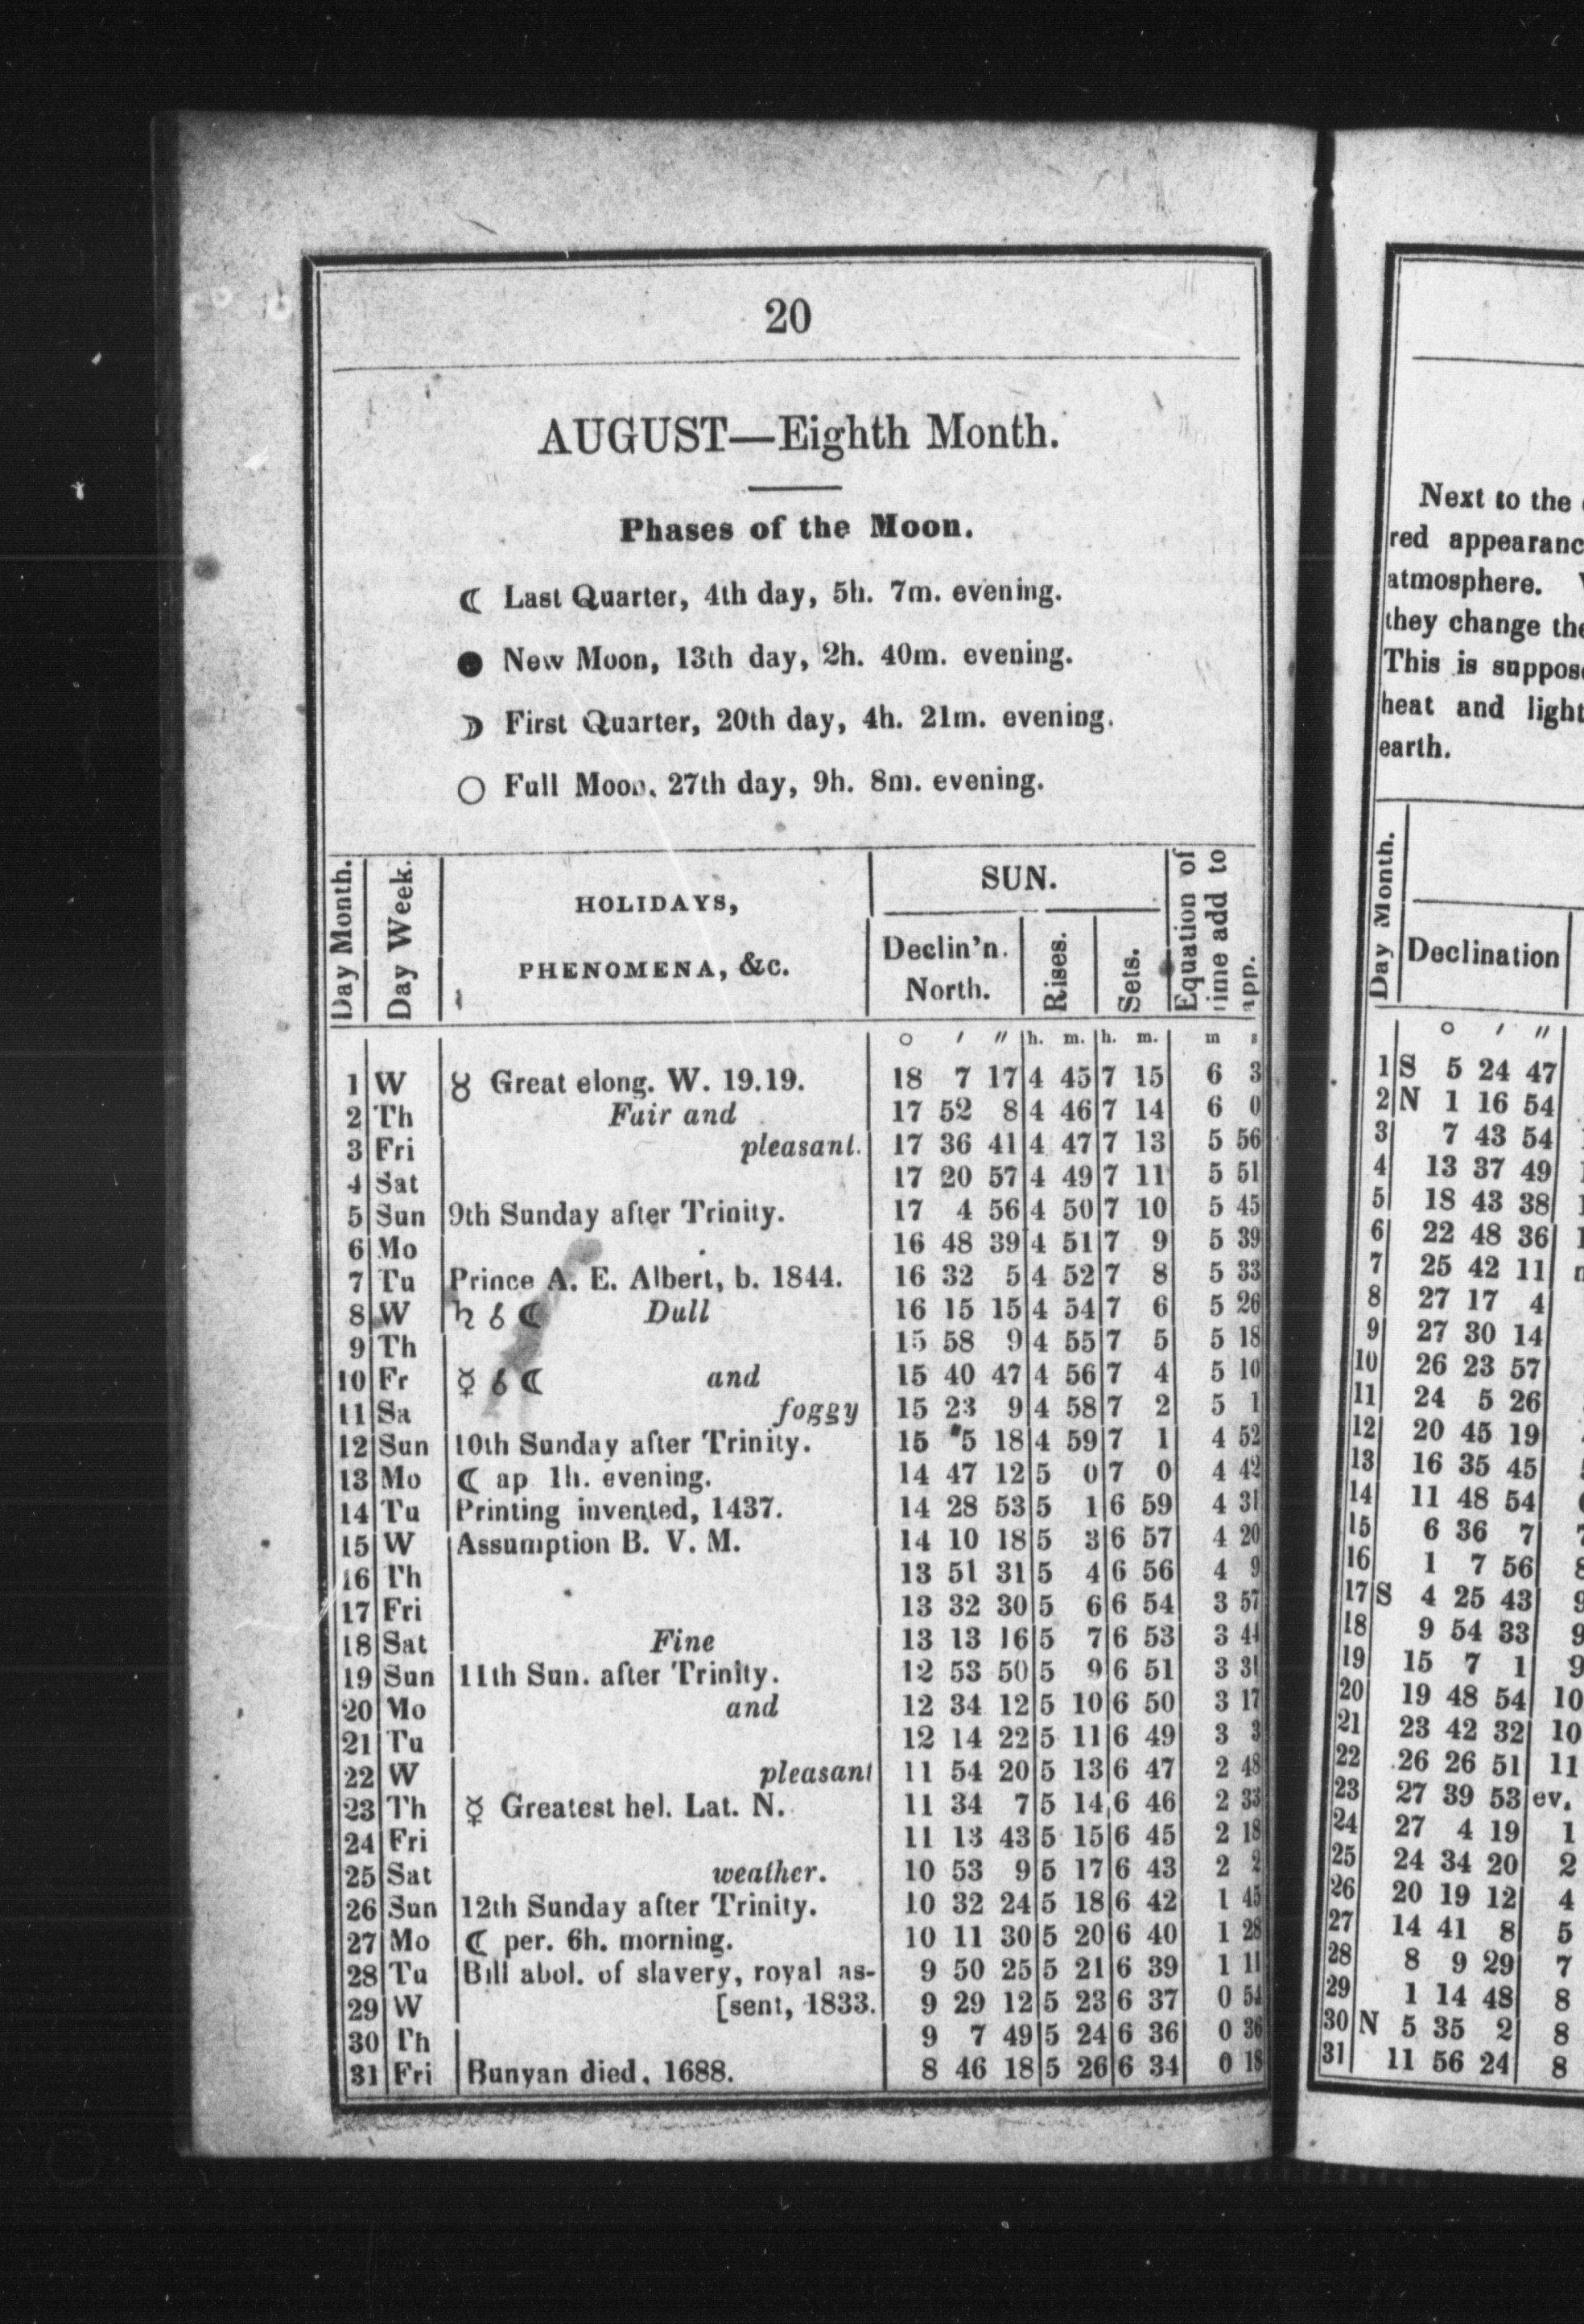 20
AUGUST—Eighth Month.
Phases of the Moon.
☾ Last Quarter, 4th day, 5h. 7m. evening.
● New Moon, 13th day, 2h. 40m. evening.
☽ First Quarter, 20th day, 4h. 21m. evening.
○ Full Moon, 27th day, 9h. 8m. evening.
Day Month. Day Week. HOLIDAYS, PHENOMENA, &c. SUN. Declin'n. North. Rises. Sets. Equation of time add to app.
○ ′ ″ h. m. h. m. m s
1 W ♉ Great elong. W. 19.19. 18 7 17 4 45 7 15 6 3
2 Th Fair and 17 52 8 4 46 7 14 6 0
3 Fri pleasant. 17 36 41 4 47 7 13 5 56
4 Sat 17 20 57 4 49 7 11 5 51
5 Sun 9th Sunday after Trinity. 17 4 56 4 50 7 10 5 45
6 Mo 16 48 39 4 51 7 9 5 39
7 Tu Prince A. E. Albert, b. 1844. 16 32 5 4 52 7 8 5 33
8 W ♄ ☌ ☾ Dull 16 15 15 4 54 7 6 5 26
9 Th 15 58 9 4 55 7 5 5 18
10 Fr ☿ ☌ ☾ and 15 40 47 4 56 7 4 5 10
11 Sa foggy 15 23 9 4 58 7 2 5 1
12 Sun 10th Sunday after Trinity. 15 5 18 4 59 7 1 4 52
13 Mo ☾ ap 1h. evening. 14 47 12 5 0 7 0 4 42
14 Tu Printing invented, 1437. 14 28 53 5 1 6 59 4 31
15 W Assumption B. V. M. 14 10 18 5 3 6 57 4 20
16 Th 13 51 31 5 4 6 56 4 9
17 Fri 13 32 30 5 6 6 54 3 57
18 Sat Fine 13 13 16 5 7 6 53 3 44
19 Sun 11th Sun. after Trinity. 12 53 50 5 9 6 51 3 31
20 Mo and 12 34 12 5 10 6 50 3 17
21 Tu 12 14 22 5 11 6 49 3 3
22 W pleasant 11 54 20 5 13 6 47 2 48
23 Th ☿ Greatest hel. Lat. N. 11 34 7 5 14 6 46 2 33
24 Fri 11 13 43 5 15 6 45 2 18
25 Sat weather. 10 53 9 5 17 6 43 2 2
26 Sun 12th Sunday after Trinity. 10 32 24 5 18 6 42 1 45
27 Mo ☾ per. 6h. morning. 10 11 30 5 20 6 40 1 28
28 Tu Bill abol. of slavery, royal as- 9 50 25 5 21 6 39 1 11
29 W [sent, 1833. 9 29 12 5 23 6 37 0 54
30 Th 9 7 49 5 24 6 36 0 36
31 Fri Bunyan died, 1688. 8 46 18 5 26 6 34 0 18
Next to the
red appearanc
atmosphere.
they change the
This is suppos
heat and light
earth.
Day Month. Declination
○ ′ ″
1 S 5 24 47
2 N 1 16 54
3 7 43 54
4 13 37 49
5 18 43 38
6 22 48 36
7 25 42 11
8 27 17 4
9 27 30 14
10 26 23 57
11 24 5 26
12 20 45 19
13 16 35 45
14 11 48 54
15 6 36 7
16 1 7 56
17 S 4 25 43 9
18 9 54 33 9
19 15 7 1 9
20 19 48 54 10
21 23 42 32 10
22 26 26 51 11
23 27 39 53 ev.
24 27 4 19 1
25 24 34 20 2
26 20 19 12 4
27 14 41 8 5
28 8 9 29 7
29 1 14 48 8
30 N 5 35 2 8
31 11 56 24 8